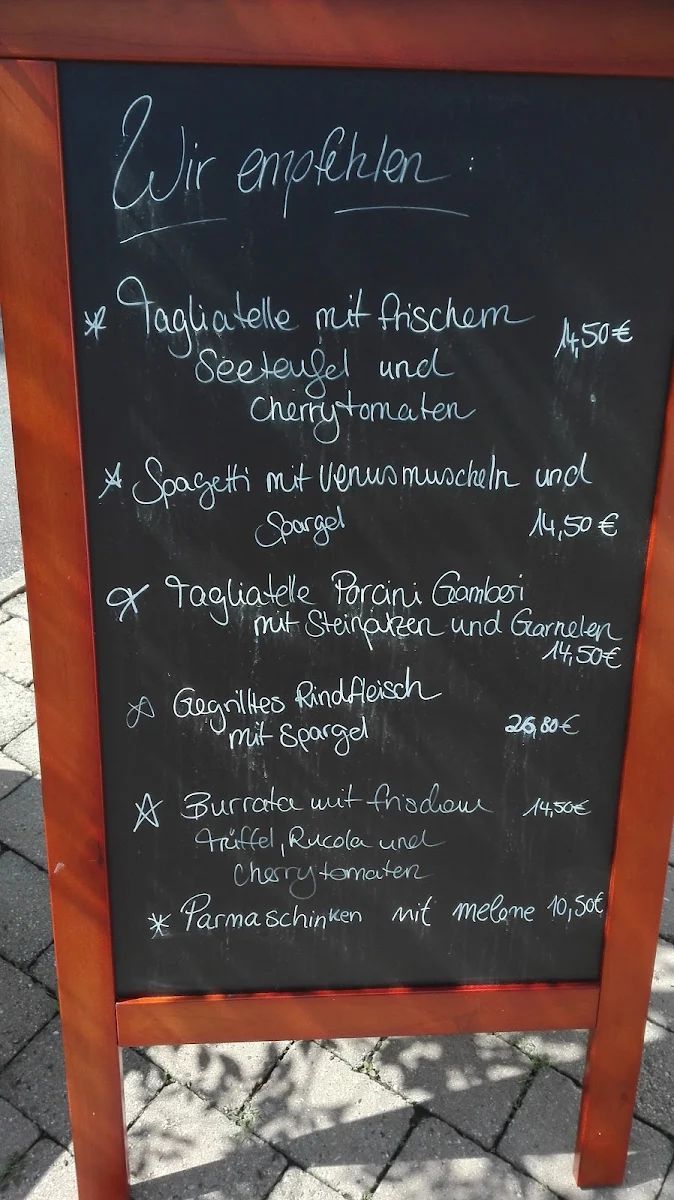 Wir empfehlen :
* Tagliatelle mit frischem 14,50 €
Seeteufel und
Cherrytomaten
* Spagetti mit Venusmuscheln und
Spargel 14,50 €
* Tagliatelle Porcini Gamberi
mit Steinpilzen und Garnelen
14,50€
* Gegrilltes Rindfleisch
mit Spargel 26,80 €
* Burrata mit frischem 14,50€
Trüffel, Rucola und
Cherrytomaten
* Parmaschinken mit melone 10,50€